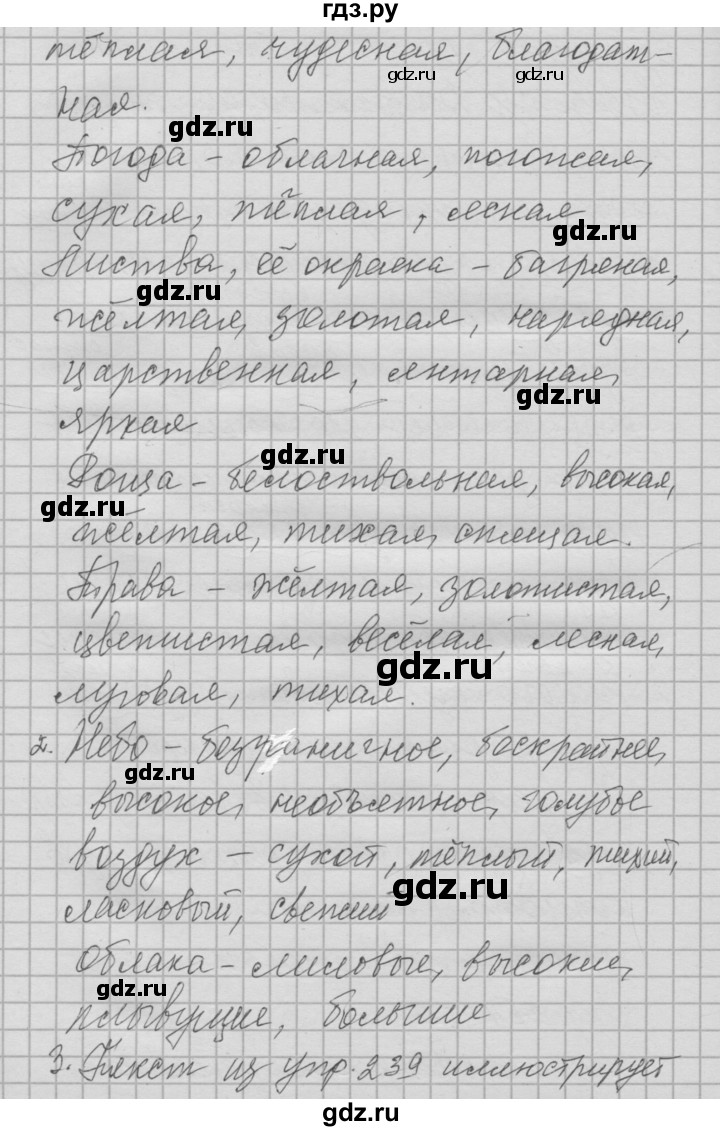 гдз.ру
тёплая, чудесная, благодат-
gdz.ru gdz.ru
ная.
gdz.ru
Погода – облачная, погожая,
сухая, тёплая, лесная
gdz.ru
Листва, её окраска – багряная,
gdz.ru
жёлтая, золотая, нарядная,
царственная, янтарная,
gdz.ru
яркая
gdz.ru
Роща – белоствольная, высокая,
gdz.ru
жёлтая, тихая, спящая.
Трава – жёлтая, золотистая,
цветистая, весёлая, лесная,
gdz.ru
луговая, тихая.
2. Небо – безграничное, бескрайнее,
gdz.ru
высокое, необъятное, голубое
воздух – сухой, тёплый, тихий,
gdz.ru
ласковый, свежий
облака – лиловые, высокие,
gdz.ru
плывущие, большие
3. Текст из упр. 239 иллюстрирует
gdz.ru